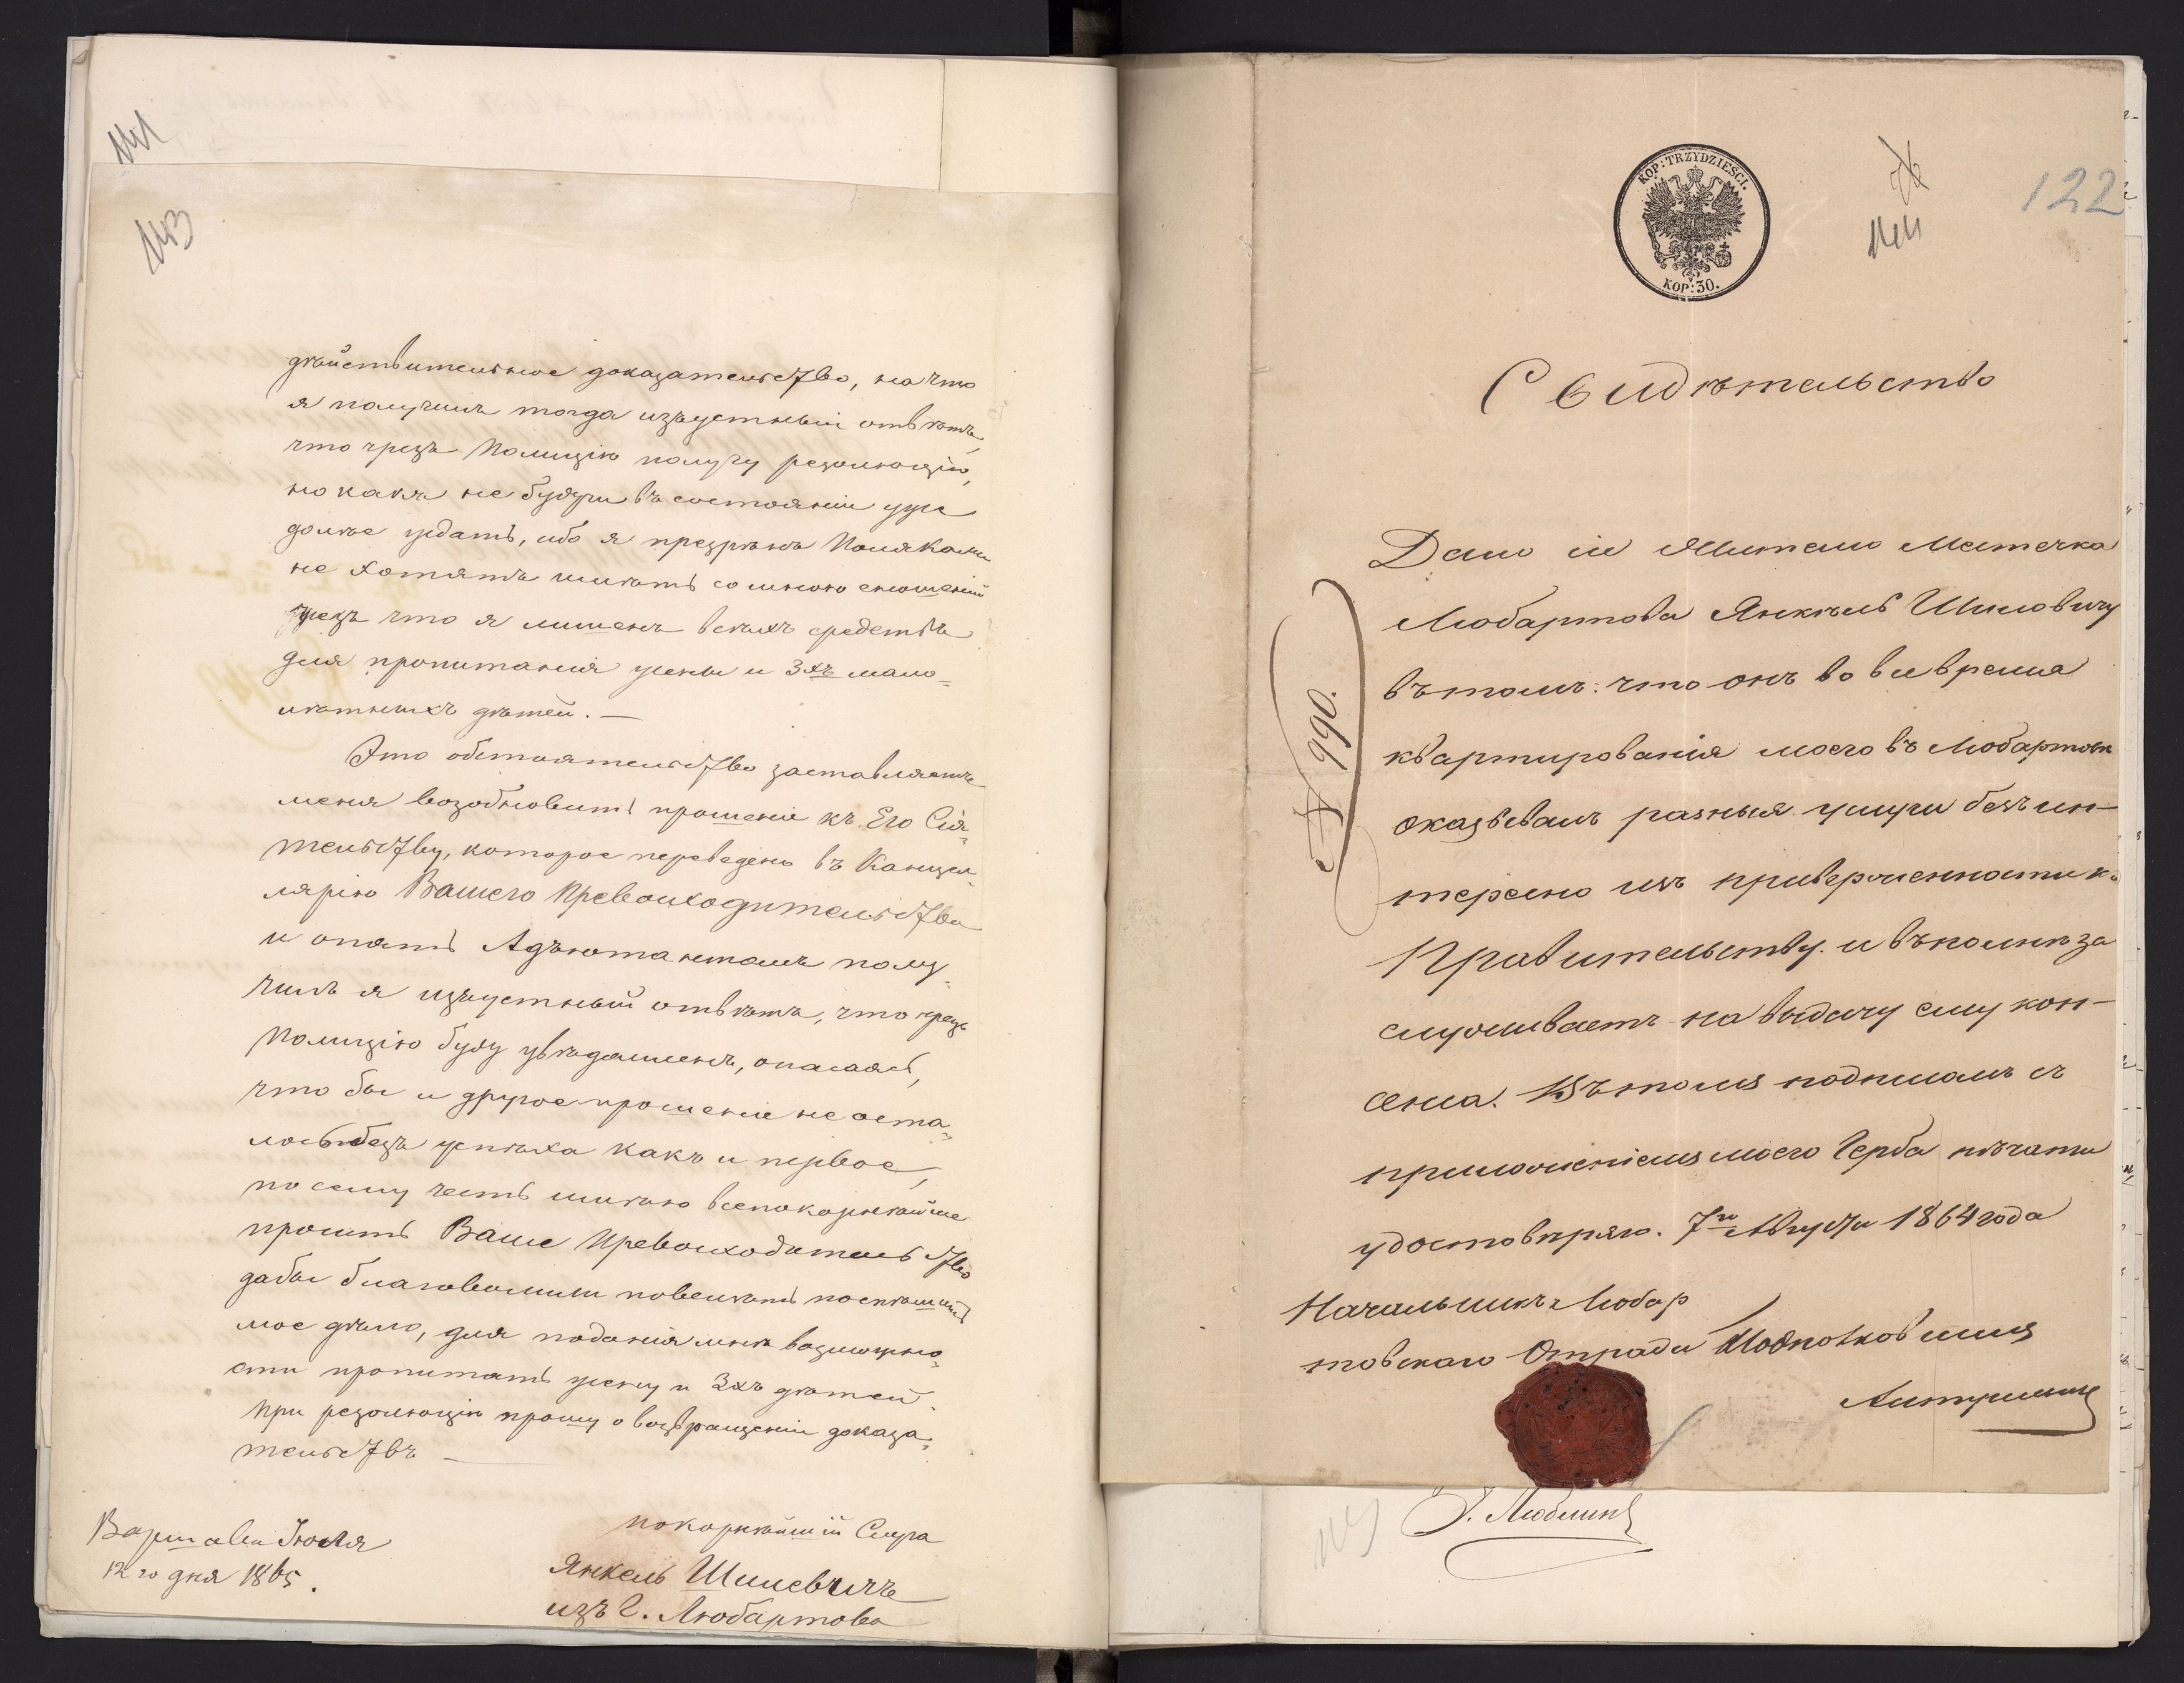 141
143
дѣйствительное доказательство, на что
я получилъ тогда изъустный отвѣтъ,
что чрезъ Полицію получу резолюцію,
но какъ не будучи въ состояніи уже
долѣе ждать, ибо я презрѣнъ Поляками
не хотятъ имѣть со мною сношеній
чрезъ что я лишенъ всѣхъ средствъ
для пропитанія жены и 3хъ мало=
лѣтныхъ дѣтей. —
Это обстоятельство заставляетъ
меня возобновить прошеніе къ Его Сія=
тельству, которое переведено въ Канцел=
лярію Вашего Превосходительства
и опять Адъютантомъ полу=
чилъ я изъустный отвѣтъ, что чрезъ
Полицію буду увѣдомленъ, опасаясь,
что бы и другое прошеніе не оста=
лось безъ успѣха какъ и первое,
по сему честь имѣю всепокорнѣйше
просить Ваше Превосходительство
дабы благоволили повелѣть поспѣшить
мое дѣло, для поданія мнѣ возможно=
сти пропитать жену и 3хъ дѣтей.
При резолюцію прошу о возвращеніи доказа=
тельствъ —
Варшава Іюля
12 го дня 1865.
покорнѣйшій Слуга
Янкель Шилевичъ
изъ г. Любартова
KOP: TRZYDZIEŚCI.
KOP: 30.
144
122
Свидѣтельство
№ 990.
Дано сіе Жителю Местечка
Любартова Янкѣль Шиловичу
въ томъ: что онъ во все время
квартированія моего въ Любартовѣ
оказывалъ разныя услуги безъ ин-
тересно изъ приверженности къ
Правительству. и въ полнѣ за
служиваетъ на выдачу ему кон-
сенса. Въ томъ подписомъ съ
приложеніемъ моего Герба пѣчати
удостовѣряю. 7го Августа 1864 года
Начальникъ Любар
товскаго Отряда Подполковникъ
Г. Люблинъ